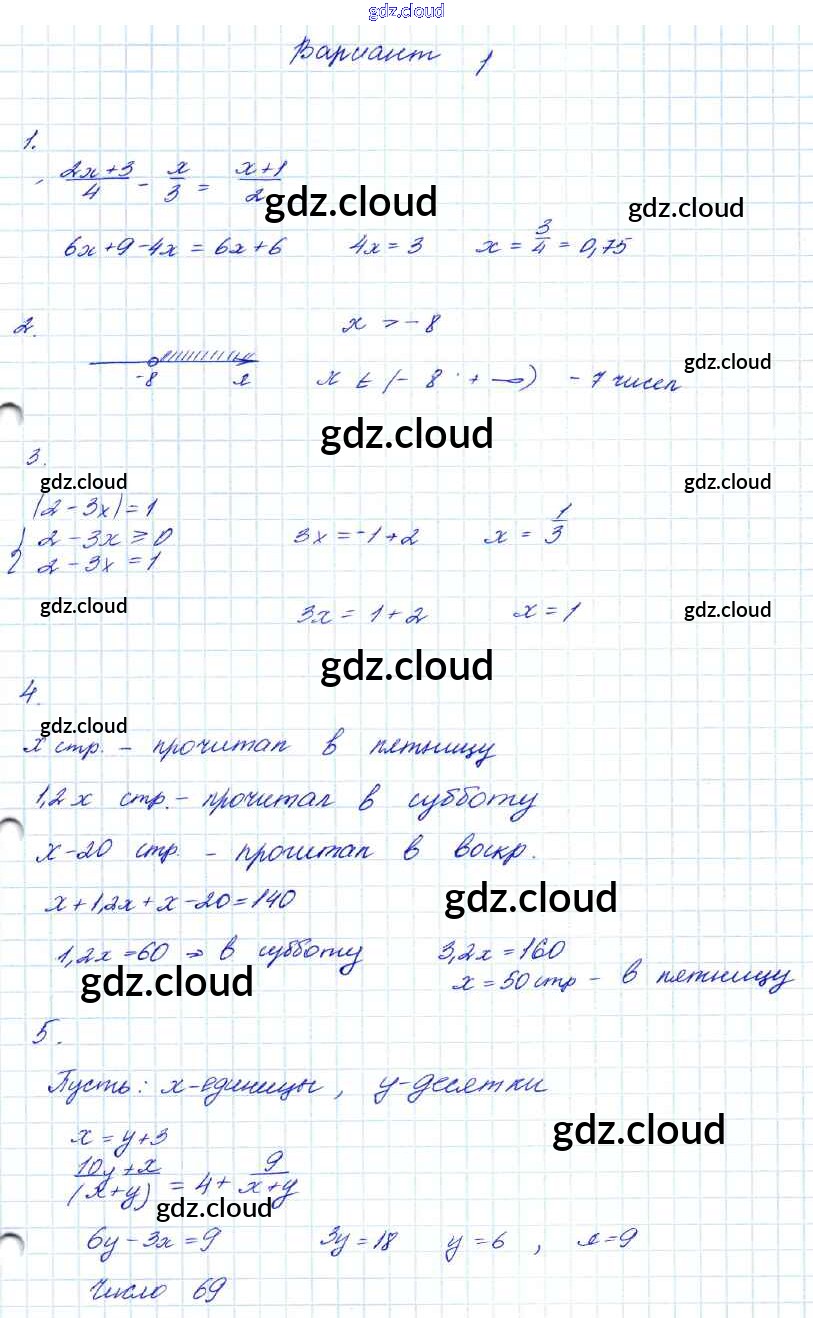 gdz.cloud
Вариант 1
1.
(2x+3)/4 - x/3 = (x+1)/2
gdz.cloud gdz.cloud
6x+9-4x = 6x+6 4x = 3 x = 3/4 = 0,75
2. x > -8
gdz.cloud
-8 x x ∈ (-8; +∞) - 7 чисел
gdz.cloud
3.
gdz.cloud gdz.cloud
|2-3x|=1
2-3x ≥ 0 3x = -1+2 x = 1/3
2-3x = 1
gdz.cloud 3x = 1+2 x = 1 gdz.cloud
gdz.cloud
4.
gdz.cloud
x стр. - прочитал в пятницу
1,2x стр. - прочитал в субботу
x-20 стр. - прочитал в воскр.
x+1,2x+x-20=140 gdz.cloud
1,2x=60 ⇒ в субботу 3,2x=160
gdz.cloud x = 50 стр - в пятницу
5.
Пусть: x-единицы, y-десятки
x = y+3 gdz.cloud
(10y+x)/(x+y) = 4 + 9/(x+y)
gdz.cloud
6y-3x=9 3y=18 y=6, x=9
Число 69